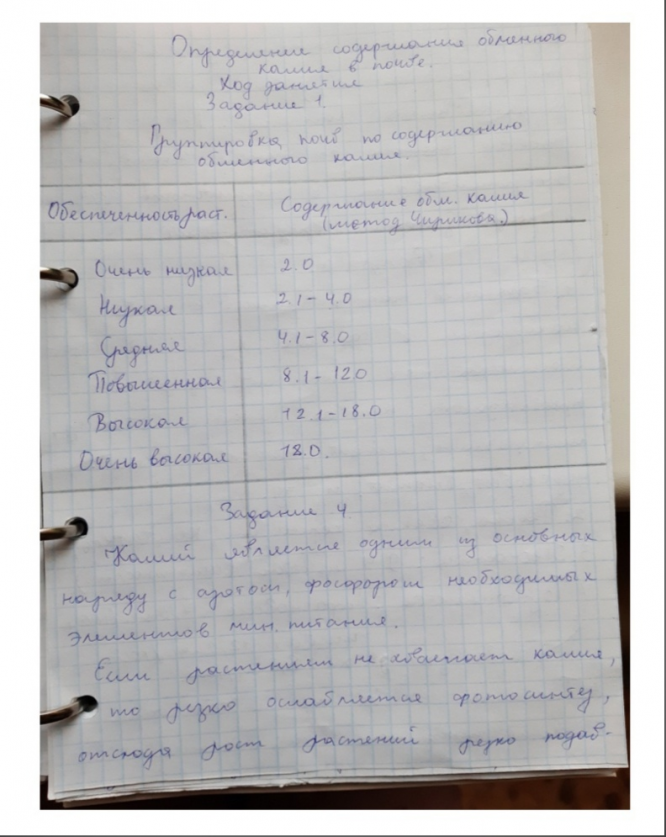 Определение содержания обменного
калия в почве.
Ход занятия
Задание 1.
Группировка почв по содержанию
обменного калия.
Обеспеченность раст. Содержание обм. калия
(метод Чирикова)
Очень низкая 2.0
Низкая 2.1-4.0
Средняя 4.1-8.0
Повышенная 8.1-120
Высокая 12.1-18.0
Очень высокая 18.0.
Задание 4
Калий является одним из основных
наряду с азотом, фосфором необходимых
элементов мин. питания.
Если растениям не хватает калия,
то резко ослабляется фотосинтез,
отсюда рост растений резко подав-